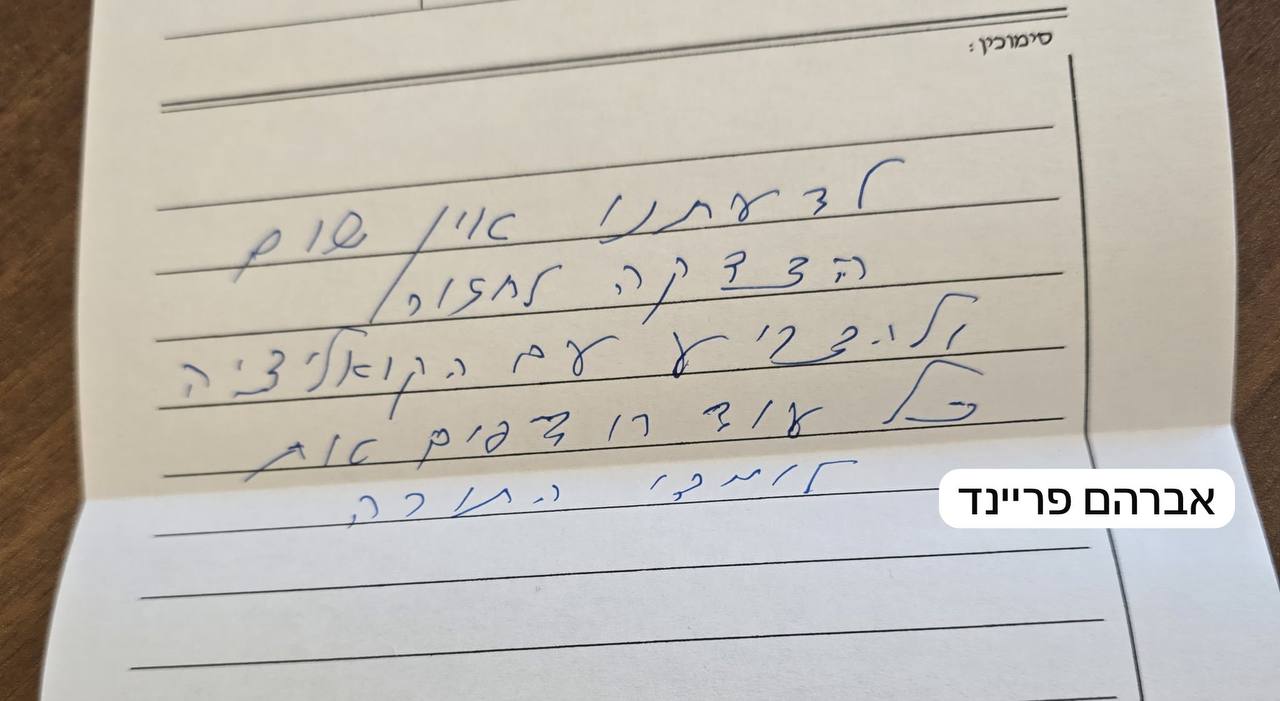 סימוכין:
לדעתנו אין שום
הצדקה לחזור
ולהצביע עם הקואליציה
כל עוד רודפים את
לומדי התורה
אברהם פריינד